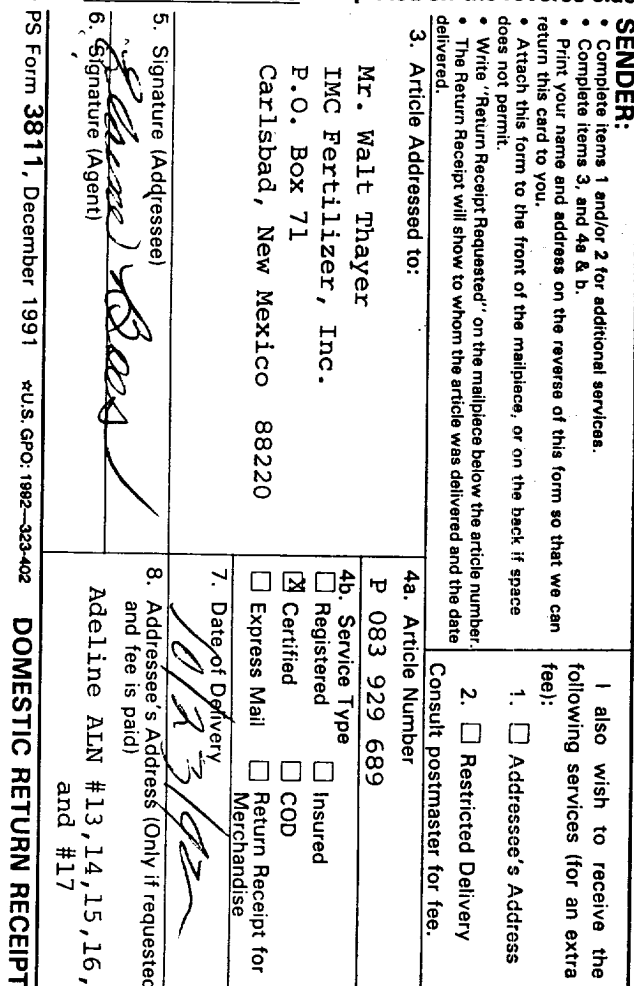 SENDER:
• Complete items 1 and/or 2 for additional services.
• Complete items 3, and 4a & b.
• Print your name and address on the reverse of this form so that we can
return this card to you.
• Attach this form to the front of the mailpiece, or on the back if space
does not permit.
• Write "Return Receipt Requested" on the mailpiece below the article number.
• The Return Receipt will show to whom the article was delivered and the date
delivered.
I also wish to receive the
following services (for an extra
fee):
1. ☐ Addressee's Address
2. ☐ Restricted Delivery
Consult postmaster for fee.
3. Article Addressed to:
Mr. Walt Thayer
IMC Fertilizer, Inc.
P.O. Box 71
Carlsbad, New Mexico 88220
4a. Article Number
P 083 929 689
4b. Service Type
☐ Registered ☐ Insured
☒ Certified ☐ COD
☐ Express Mail ☐ Return Receipt for
Merchandise
7. Date of Delivery
10/23/92
5. Signature (Addressee)
6. Signature (Agent)
8. Addressee's Address (Only if requested
and fee is paid)
Adeline ALN #13,14,15,16,
and #17
PS Form 3811, December 1991 ☆U.S. GPO: 1992—323-402 DOMESTIC RETURN RECEIPT